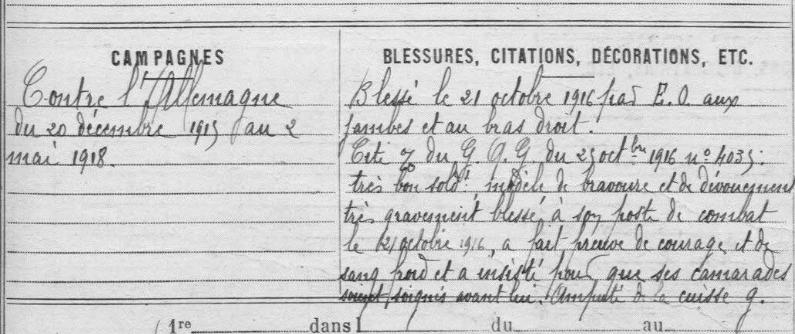 CAMPAGNES
Contre l'Allemagne
du 20 décembre 1915 au 2
mai 1918.
BLESSURES, CITATIONS, DÉCORATIONS, ETC.
Blessé le 21 octobre 1916 par E.O. aux
jambes et au bras droit.
Cité du G.Q.G. du 25 octbre 1916 n° 4035:
très bon soldt modèle de bravoure et de dévouement
très gravement blessé à son poste de combat
le 21 octobre 1916, a fait preuve de courage et de
sang froid et a insisté pour que ses camarades
soient soignés avant lui. Amputé de la cuisse g.
1re dans du au